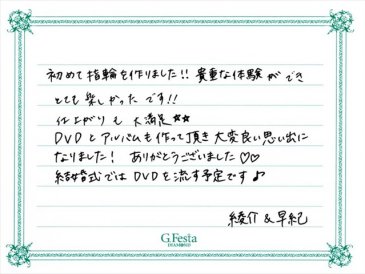 初めて指輪を作りました!! 貴重な体験ができ
とても楽しかったです!!
仕上がりも大満足☆☆
DVDとアルバムも作って頂き大変良い思い出に
なりました! ありがとうございました♡♡
結婚式ではDVDを流す予定です♪
綾介&早紀
G.Festa
DIAMOND